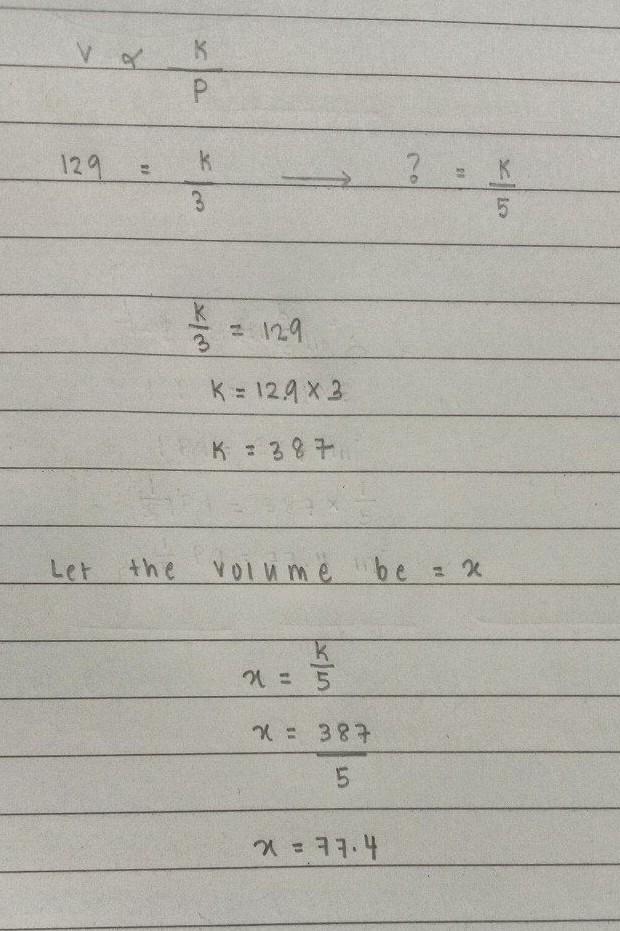 V ∝ K/P
129 = K/3 ⟶ ? = K/5
K/3 = 129
K = 129 × 3
K = 387
Let the volume be = x
x = K/5
x = 387/5
x = 77.4